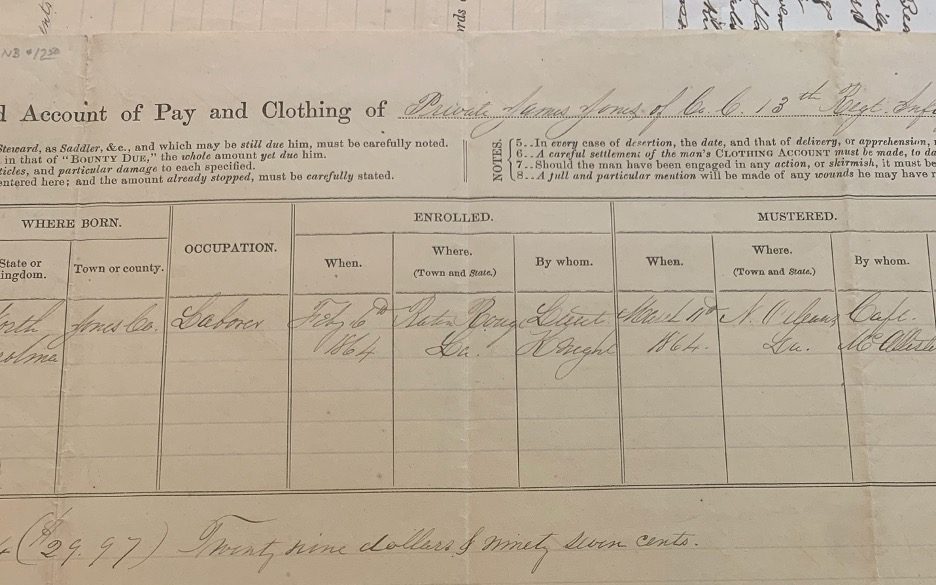 NB $12.50
d Account of Pay and Clothing of Private James Jones of Co. C. 13th Regt. Inf
Steward, as Saddler, &c., and which may be still due him, must be carefully noted.
in that of "BOUNTY DUE," the whole amount yet due him.
ticles, and particular damage to each specified.
entered here; and the amount already stopped, must be carefully stated.
NOTES.
5..In every case of desertion, the date, and that of delivery, or apprehension,
6..A careful settlement of the man's CLOTHING ACCOUNT must be made, to da
7..Should the man have been engaged in any action, or skirmish, it must be
8..A full and particular mention will be made of any wounds he may have r
WHERE BORN. OCCUPATION. ENROLLED. MUSTERED.
State or
ingdom. Town or county. When. Where.
(Town and State.) By whom. When. Where.
(Town and State.) By whom.
orth Jones Co. Laborer Feby 6th Baton Roug Lieut March 11th N. Orleans Capt.
rolina 1864 La. Knight 1864. La. McAlliste
($29.97) Twenty nine dollars & ninety seven cents.